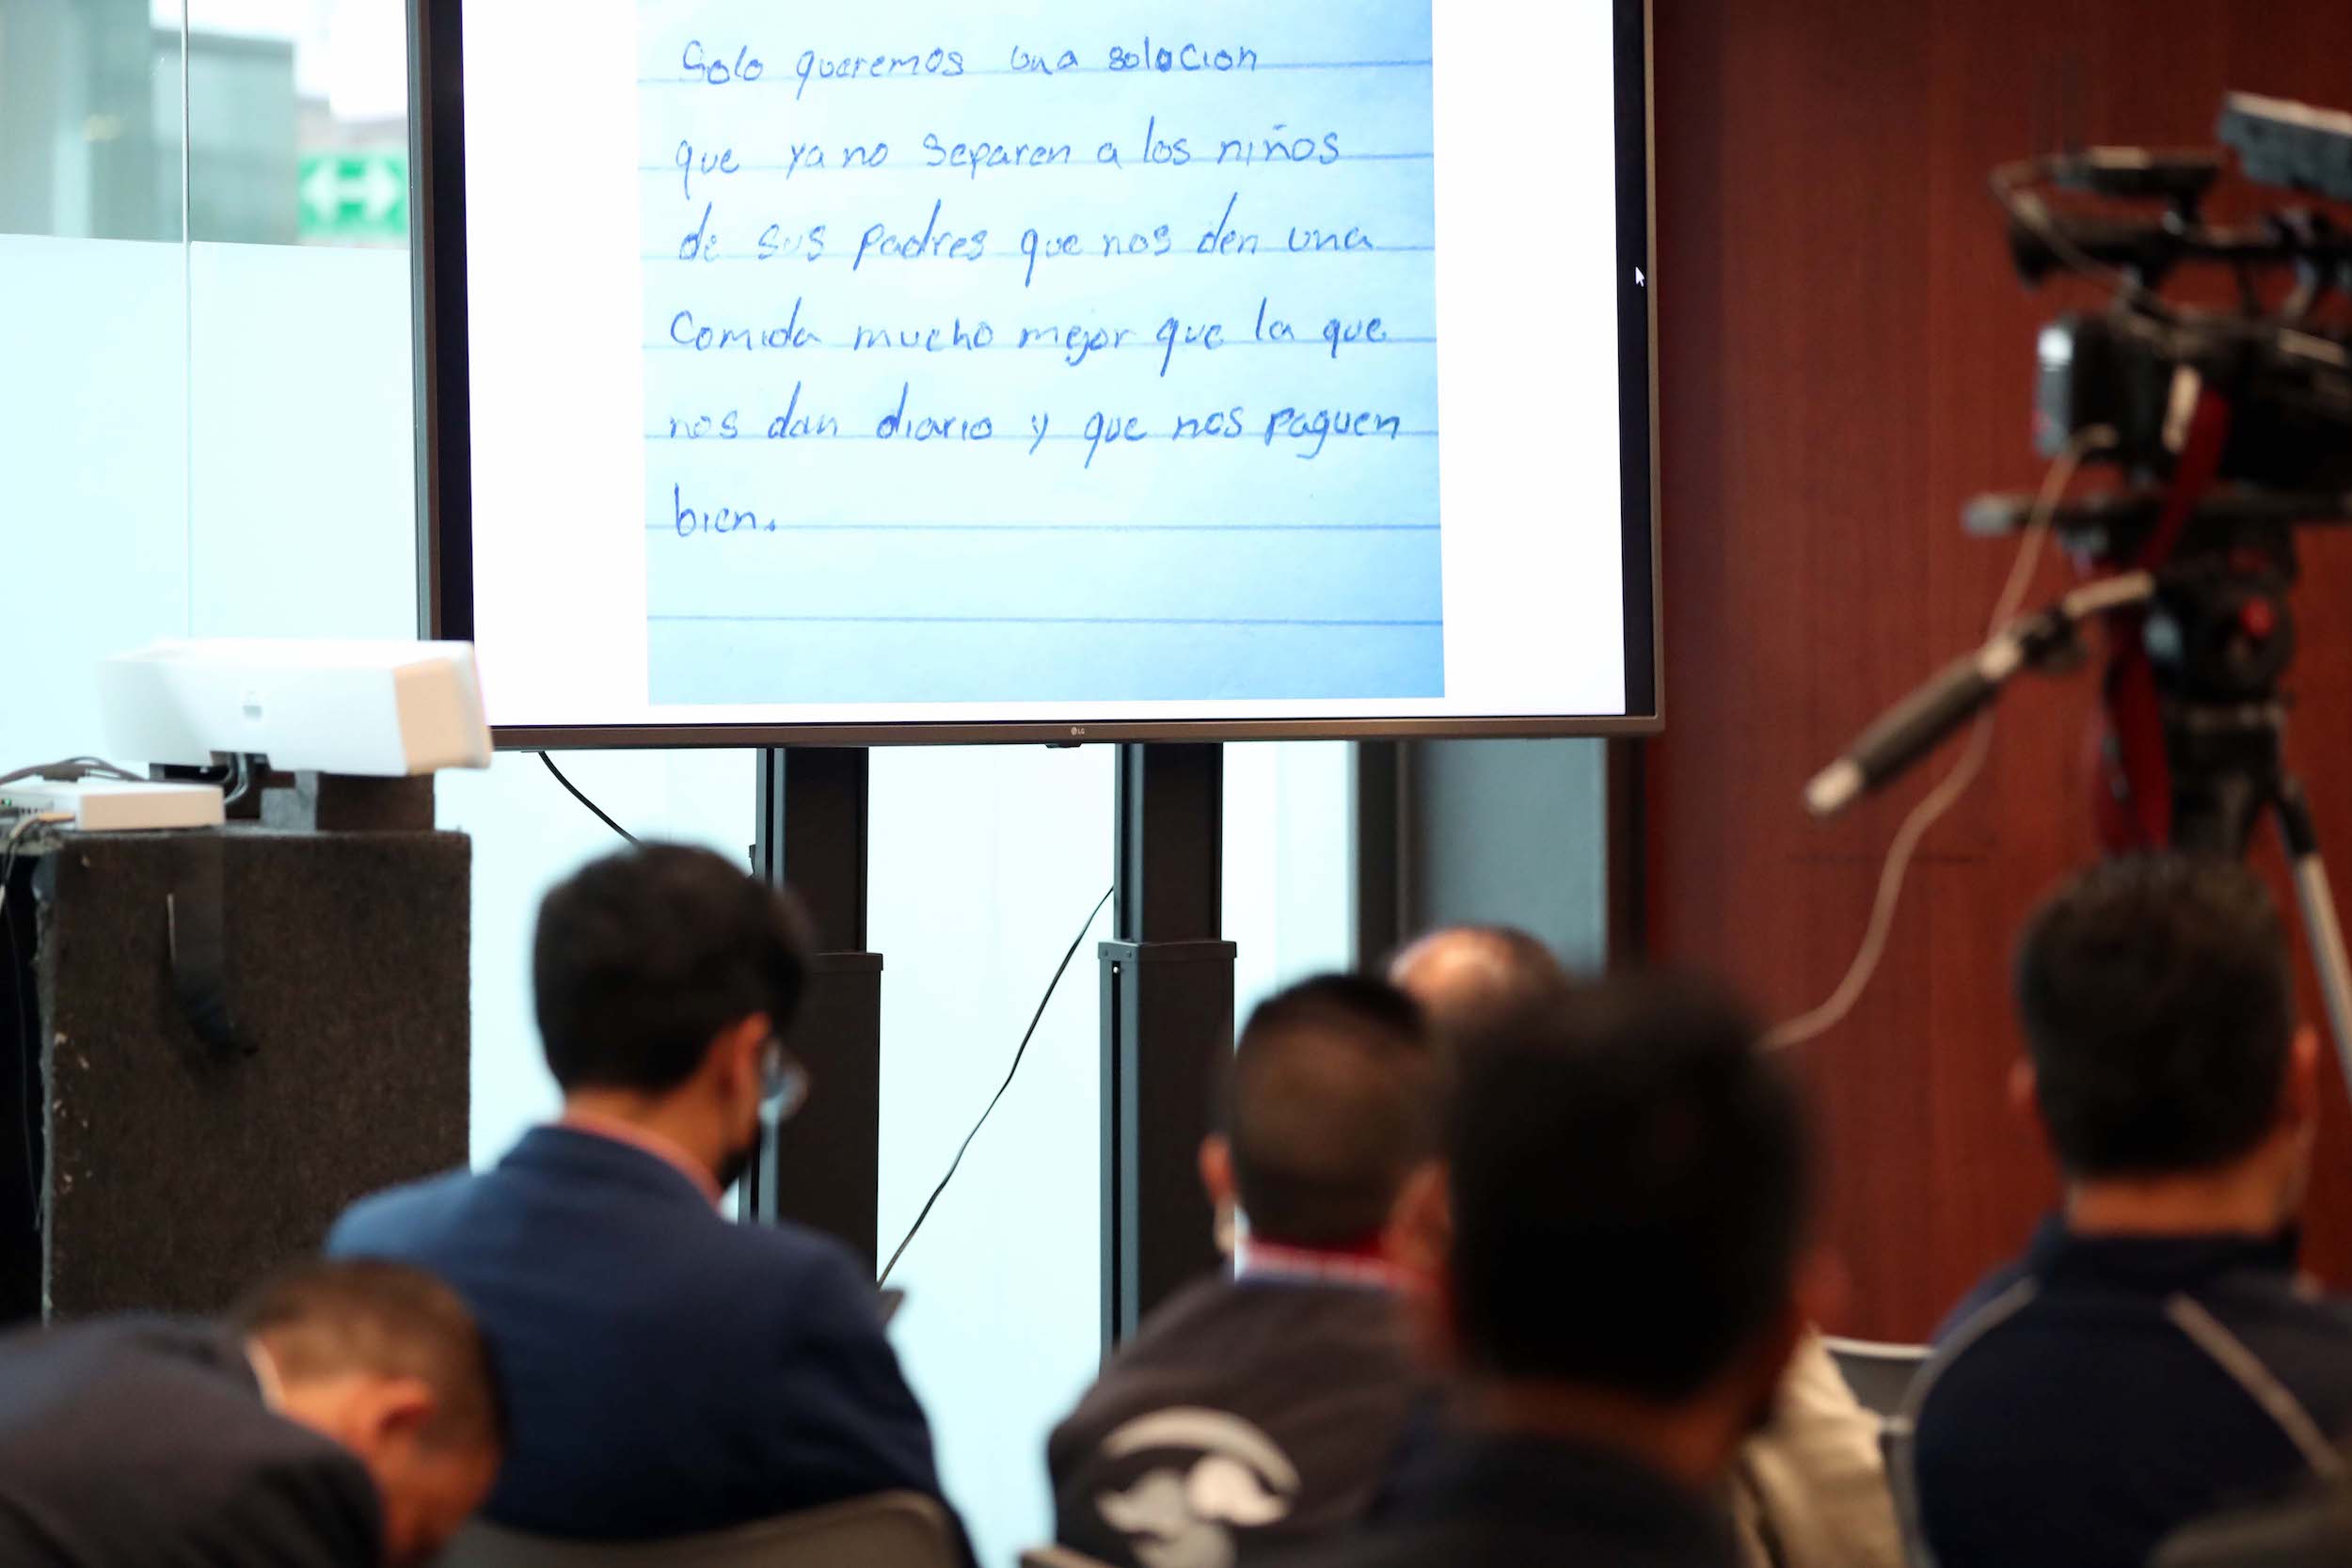 Solo queremos una solucion
que ya no separen a los niños
de sus padres que nos den una
Comida mucho mejor que la que
nos dan diario y que nos paguen
bien.
LG